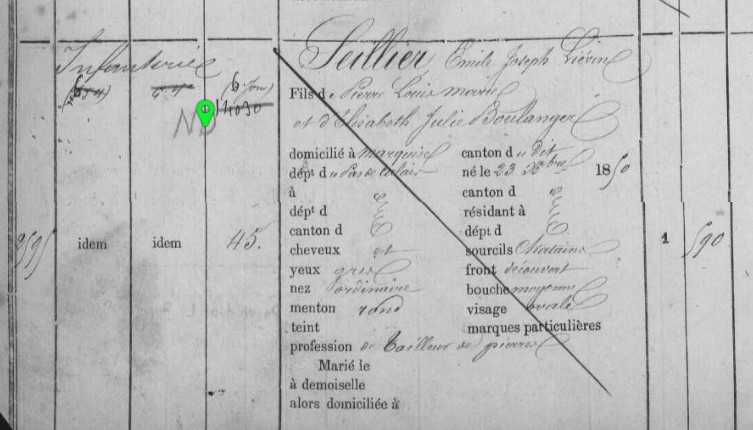 Infanterie
Seillier Emile Joseph Liévin
Fils de Pierre Louis Marie
14030
et d'Elisabeth Julie Boulanger
domicilié à Marquise canton du dit
dépt du Pas de Calais né le 23 Xbre 1850
à canton d
dépt d résidant à
canton d dépt d
idem idem 45. cheveux et sourcils Chatains 1 590
yeux gris front découvert
nez ordinaire bouche moyenne
menton rond visage ovale
teint marques particulières
profession de tailleur de pierres
Marié le
à demoiselle
alors domiciliée à